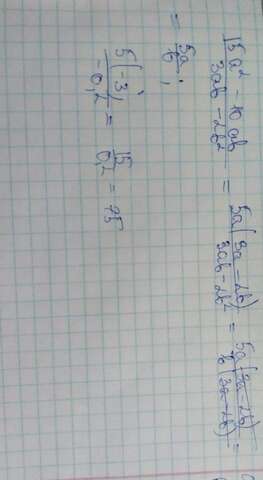 (15a² - 10ab)/(3ab - 2b²) = 5a(3a - 2b)/(3ab - 2b²) = 5a(3a - 2b)/(b(3a - 2b)) =
= 5a/b;
5(-3)/(-0,2) = 15/0,2 = 75